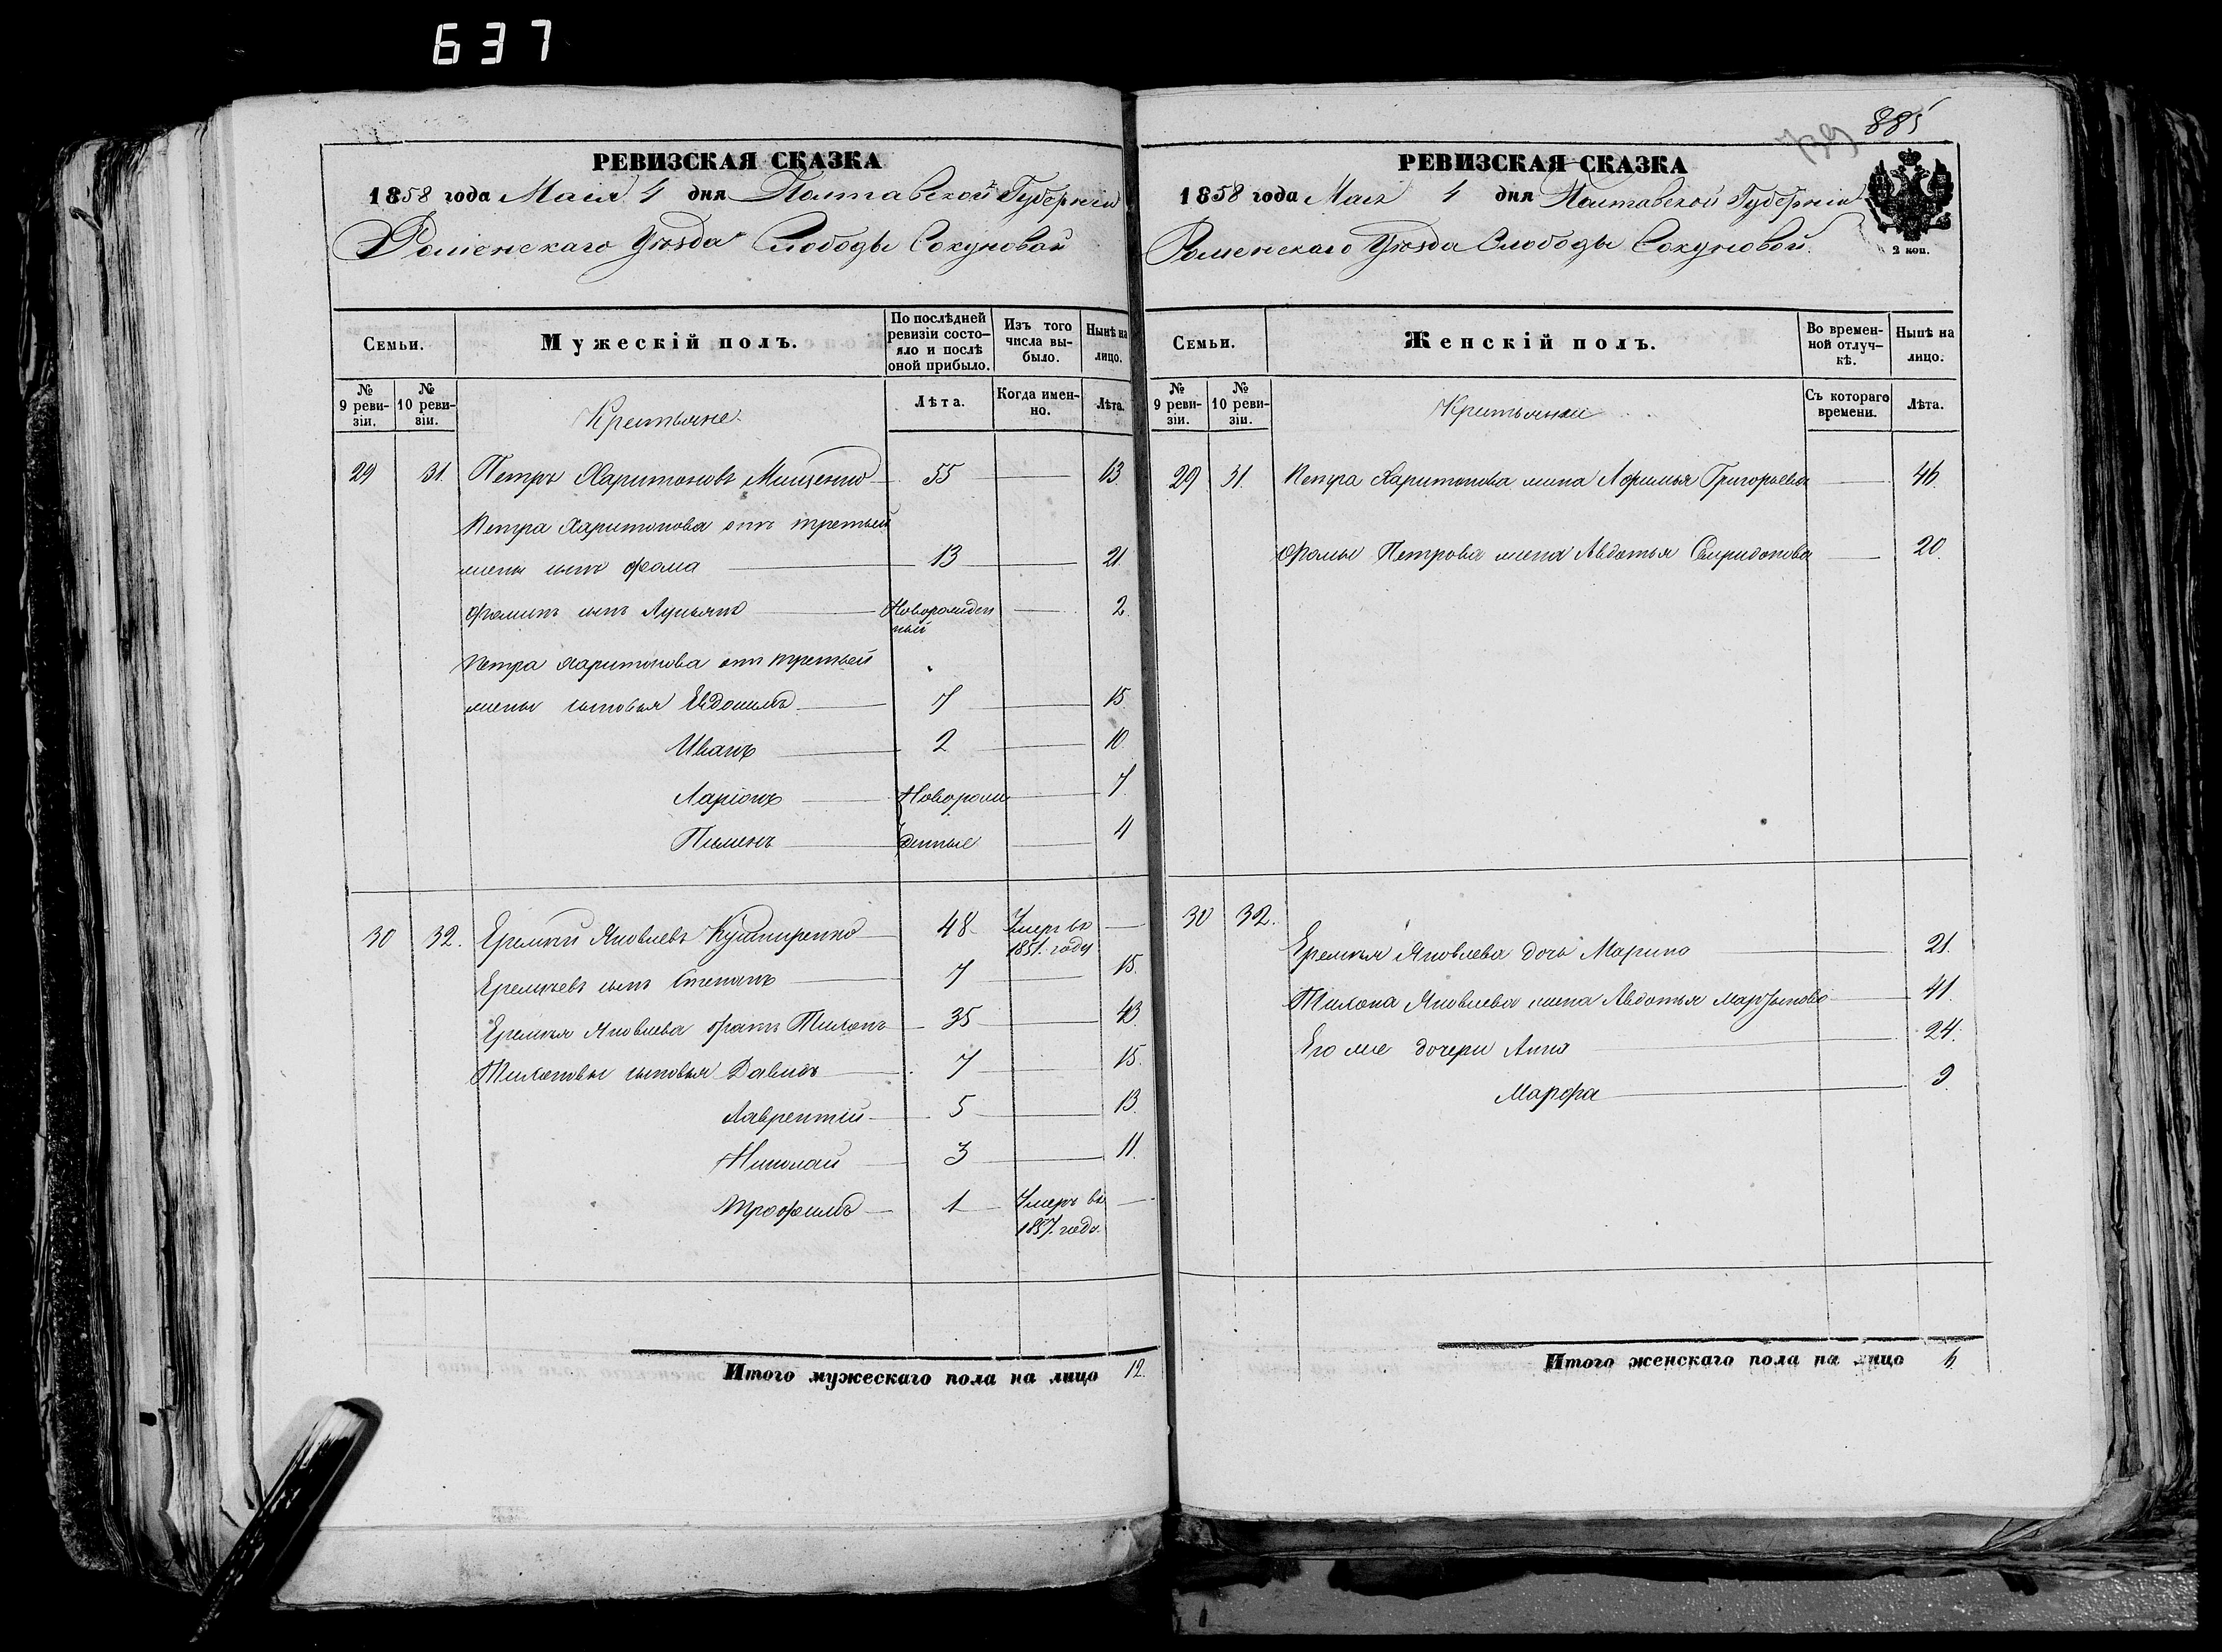 637
РЕВИЗСКАЯ СКАЗКА
1858 года Маия 4 дня Полтавской Губерніи
Роменскаго Уѣзда Слободы Сокуновой
Семьи.
Мужескій полъ.
По послѣдней ревизіи состояло и послѣ оной прибыло.
Изъ того числа выбыло.
Нынѣ на лицо.
№ 9 ревизіи.
№ 10 ревизіи.
Крестьяне
Лѣта.
Когда именно.
Лѣта.
29 31. Петръ Харитоновъ Мищенко 55 63
Петра Харитонова отъ третьей
жены сынъ Фома 13 21.
Фоминъ сынъ Лукьянъ Новорожденный 2.
Петра Харитонова отъ третьей
жены сыновья Евдокимъ 7 15
Иванъ 2 10
Ларіонъ Новорож 7
Пименъ денные 4
30 32. Еремѣй Яковлевъ Кушниренко 48 Умеръ въ 1851. году
Еремѣевъ сынъ Степанъ 7 15.
Еремѣя Яковлева братъ Тихонъ 35 43
Тихоновы сыновья Давидъ 7 15.
Лаврентій 5 13.
Николай 3 11.
Трофимъ 1 Умеръ въ 1857. году.
Итого мужескаго пола на лицо 12.
885
739
РЕВИЗСКАЯ СКАЗКА
1858 года Маия 4 дня Полтавской Губерніи
Роменскаго Уѣзда Слободы Сокуновой.
2 коп.
Семьи.
Женскій полъ.
Во временной отлучкѣ.
Нынѣ на лицо.
№ 9 ревизіи.
№ 10 ревизіи.
Крестьянки
Съ котораго времени.
Лѣта.
29 31. Петра Харитонова жена Афимья Григорьева 46.
Фомы Петрова жена Авдотья Спиридонова 20.
30 32.
Еремѣя Яковлева дочь Марина 21.
Тихона Яковлева жена Авдотья 41.
Его же дочери Анна 24.
Марфа 9
Итого женскаго пола на лицо 6.